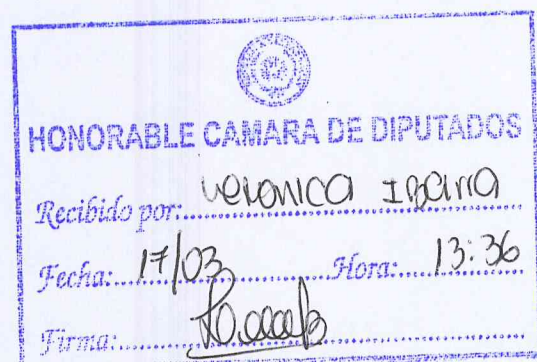 HONORABLE CAMARA DE DIPUTADOS
Recibido por: Veronica Ibarra
Fecha: 17/03 Hora: 13:36
Firma: